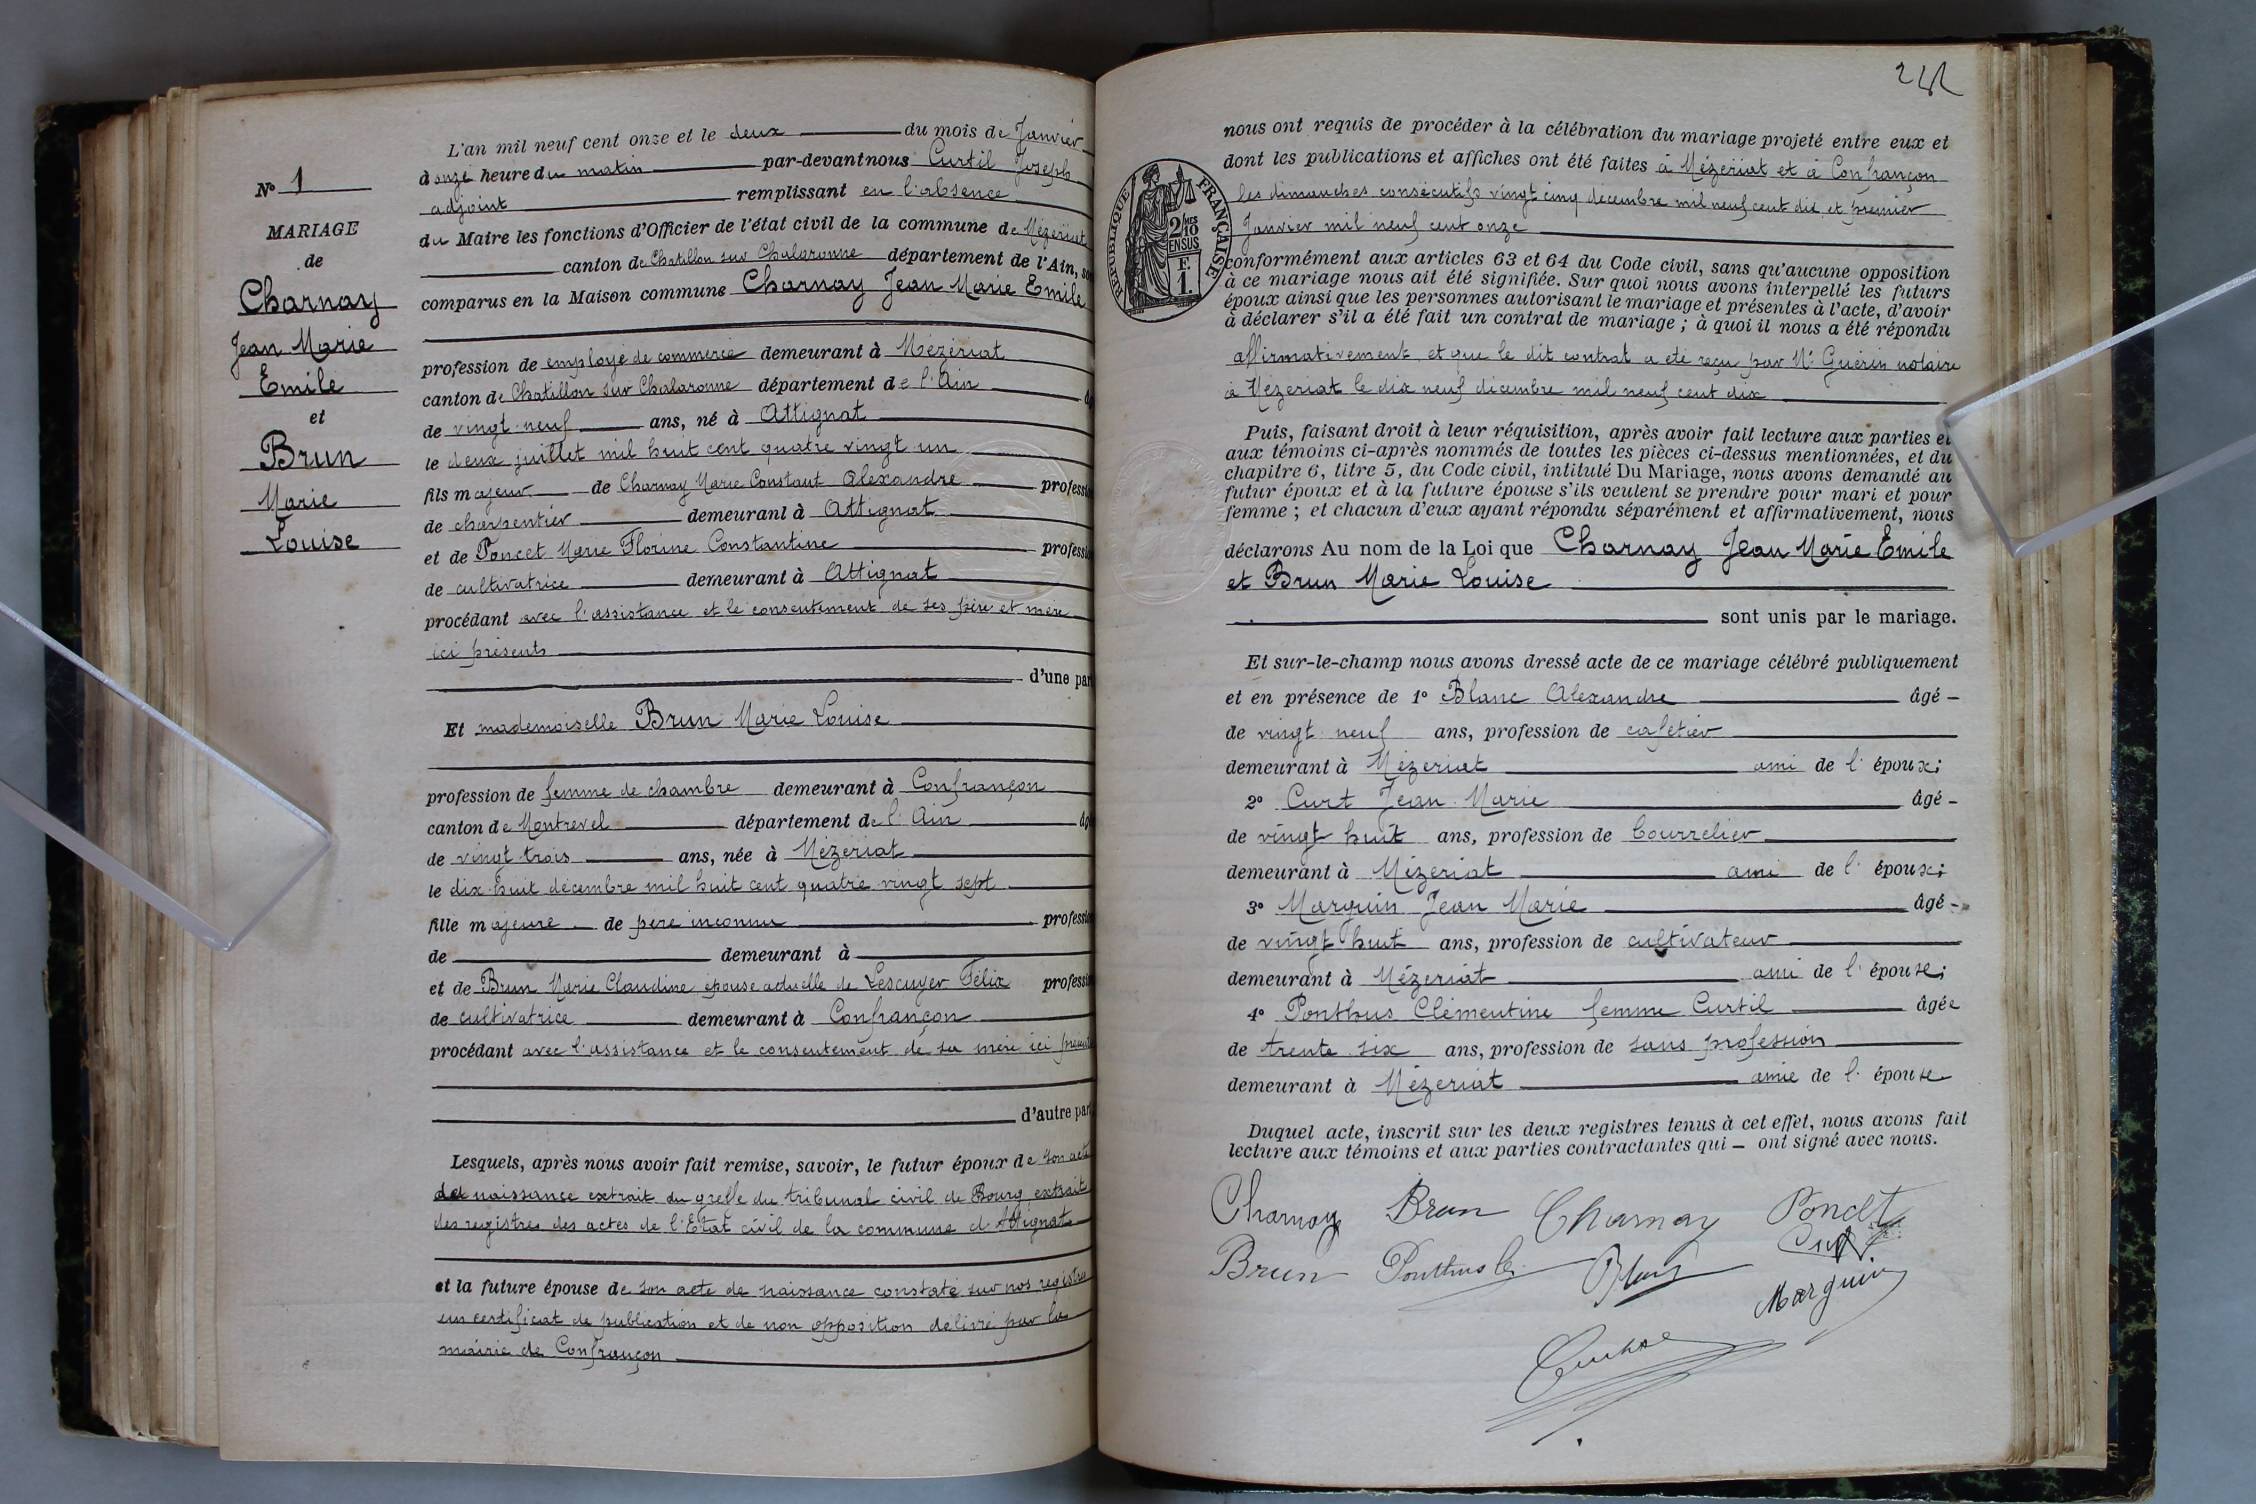 L'an mil neuf cent onze et le deux du mois de Janvier
à onze heure du matin par-devant nous Curtil Joseph
adjoint remplissant en l'absence
du Maire les fonctions d'Officier de l'état civil de la commune de Mézériat
canton de Chatillon sur Chalaronne département de l'Ain, so
comparus en la Maison commune Charnay Jean Marie Emile
profession de employé de commerce demeurant à Mézériat
canton de Chatillon sur Chalaronne département de l'Ain
de vingt neuf ans, né à Attignat
le deux juillet mil huit cent quatre vingt un
fils majeur de Charnay Marie Constant Alexandre professi
de charpentier demeurant à Attignat
et de Poncet Marie Florine Constantine professi
de cultivatrice demeurant à Attignat
procédant avec l'assistance et le consentement de ses père et mère
ici présents
d'une par
Et mademoiselle Brun Marie Louise
profession de femme de chambre demeurant à Confrançon
canton de Montrevel département de l'Ain
de vingt trois ans, née à Mézériat
le dix huit décembre mil huit cent quatre vingt sept
fille majeure de père inconnu professi
de demeurant à
et de Brun Marie Claudine épouse actuelle de Lescuyer Félix professi
de cultivatrice demeurant à Confrançon
procédant avec l'assistance et le consentement de sa mère ici présente
d'autre par
Lesquels, après nous avoir fait remise, savoir, le futur époux de son acte
de naissance extrait du greffe du tribunal civil de Bourg extrait
des registres des actes de l'Etat civil de la commune d'Attignat
et la future épouse de son acte de naissance constaté sur nos registres
un certificat de publication et de non opposition délivré par la
mairie de Confrançon
No 1
MARIAGE
de
Charnay
Jean Marie
Emile
et
Brun
Marie
Louise
RÉPUBLIQUE FRANÇAISE
2/10
ENSUS
F.
1.
nous ont requis de procéder à la célébration du mariage projeté entre eux et
dont les publications et affiches ont été faites à Mézériat et à Confrançon
les dimanches consécutifs vingt cinq décembre mil neuf cent dix et premier
Janvier mil neuf cent onze
conformément aux articles 63 et 64 du Code civil, sans qu'aucune opposition
à ce mariage nous ait été signifiée. Sur quoi nous avons interpellé les futurs
époux ainsi que les personnes autorisant le mariage et présentes à l'acte, d'avoir
à déclarer s'il a été fait un contrat de mariage ; à quoi il nous a été répondu
affirmativement et que le dit contrat a été reçu par Me Guérin notaire
à Mézériat le dix neuf décembre mil neuf cent dix
Puis, faisant droit à leur réquisition, après avoir fait lecture aux parties et
aux témoins ci-après nommés de toutes les pièces ci-dessus mentionnées, et du
chapitre 6, titre 5, du Code civil, intitulé Du Mariage, nous avons demandé au
futur époux et à la future épouse s'ils veulent se prendre pour mari et pour
femme ; et chacun d'eux ayant répondu séparément et affirmativement, nous
déclarons Au nom de la Loi que Charnay Jean Marie Emile
et Brun Marie Louise
sont unis par le mariage.
Et sur-le-champ nous avons dressé acte de ce mariage célébré publiquement
et en présence de 1o Blanc Alexandre âgé
de vingt neuf ans, profession de cafetier
demeurant à Mézeriat ami de l'époux;
2o Curt Jean Marie âgé
de vingt huit ans, profession de bourrelier
demeurant à Mézeriat ami de l'époux;
3o Marguin Jean Marie âgé
de vingt huit ans, profession de cultivateur
demeurant à Mézeriat ami de l'épouse;
4o Ponthus Clémentine femme Curtil âgée
de trente six ans, profession de sans profession
demeurant à Mézeriat amie de l'épouse
Duquel acte, inscrit sur les deux registres tenus à cet effet, nous avons fait
lecture aux témoins et aux parties contractantes qui ont signé avec nous.
Charnay Brun Charnay Poncet
Brun Ponthus C. Blanc Curt
Marguin